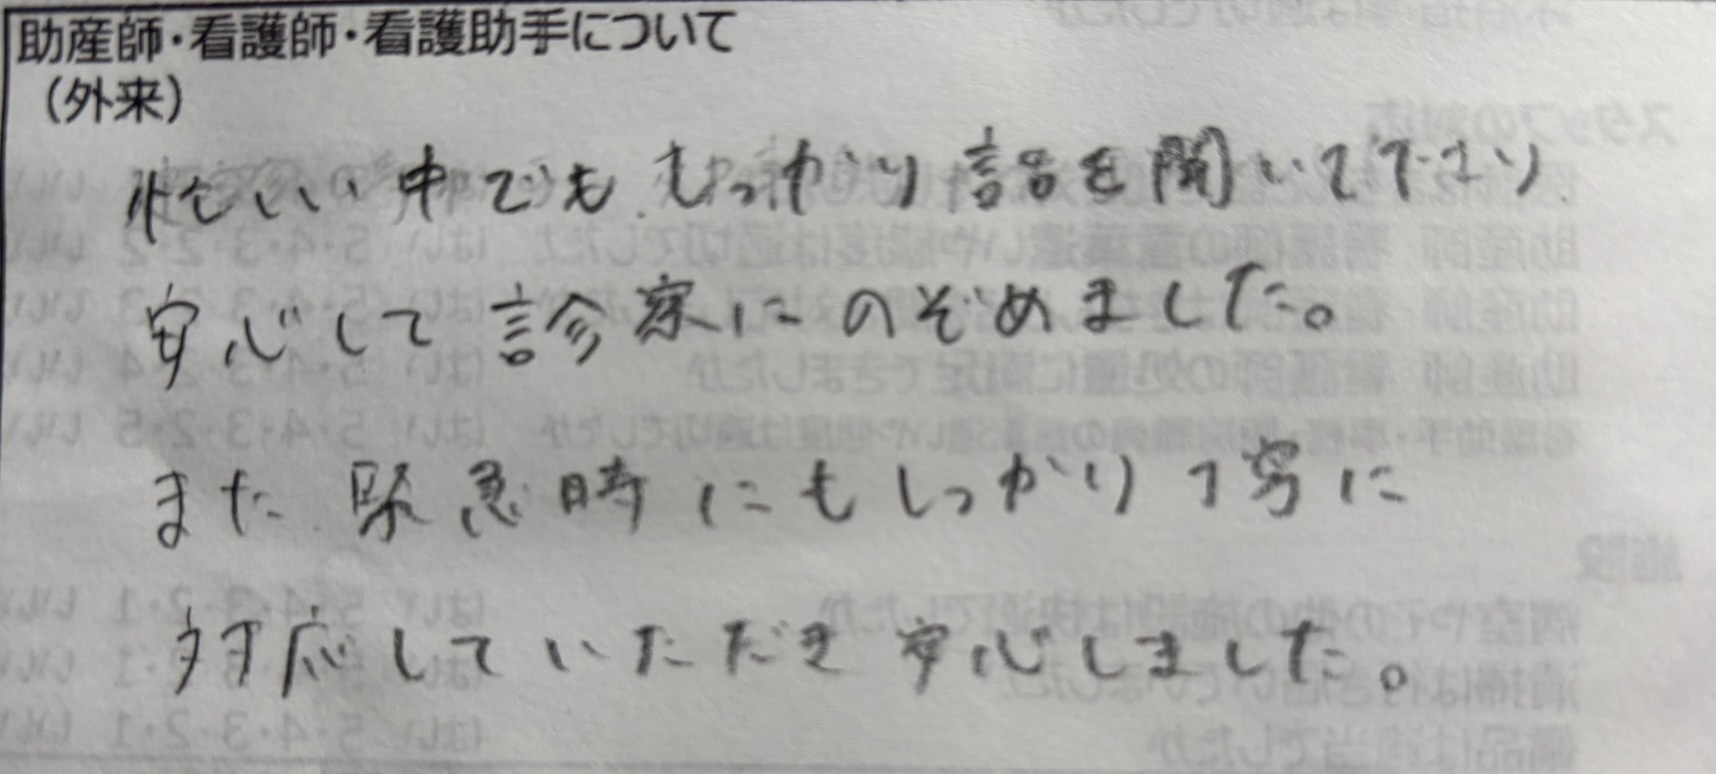 助産師・看護師・看護助手について
（外来）
忙しい中でも、しっかり話を聞いて下さり
安心して診察にのぞめました。
また、緊急時にもしっかり丁寧に
対応していただき安心しました。